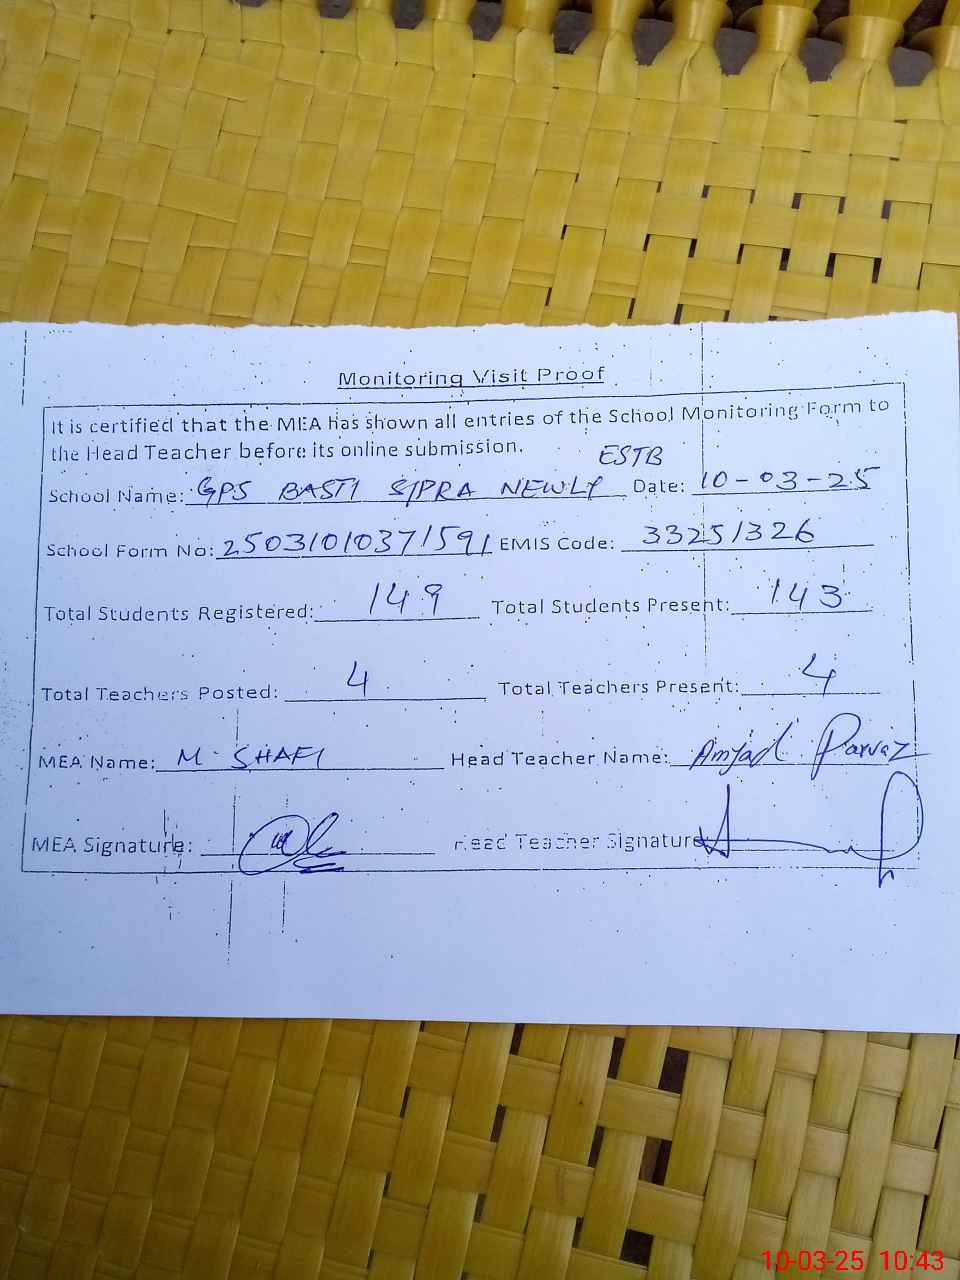 Monitoring Visit Proof
It is certified that the MEA has shown all entries of the School Monitoring Form to
the Head Teacher before its online submission.
ESTB
School Name: GPS BASTI SIPRA NEWLY Date: 10-03-25
School Form No: 25031010371591 EMIS Code: 33251326
Total Students Registered: 149 Total Students Present: 143
Total Teachers Posted: 4 Total Teachers Present: 4
MEA Name: M. SHAFI Head Teacher Name: Amjad Parvaz
MEA Signature: Head Teacher Signature
10-03-25 10:43